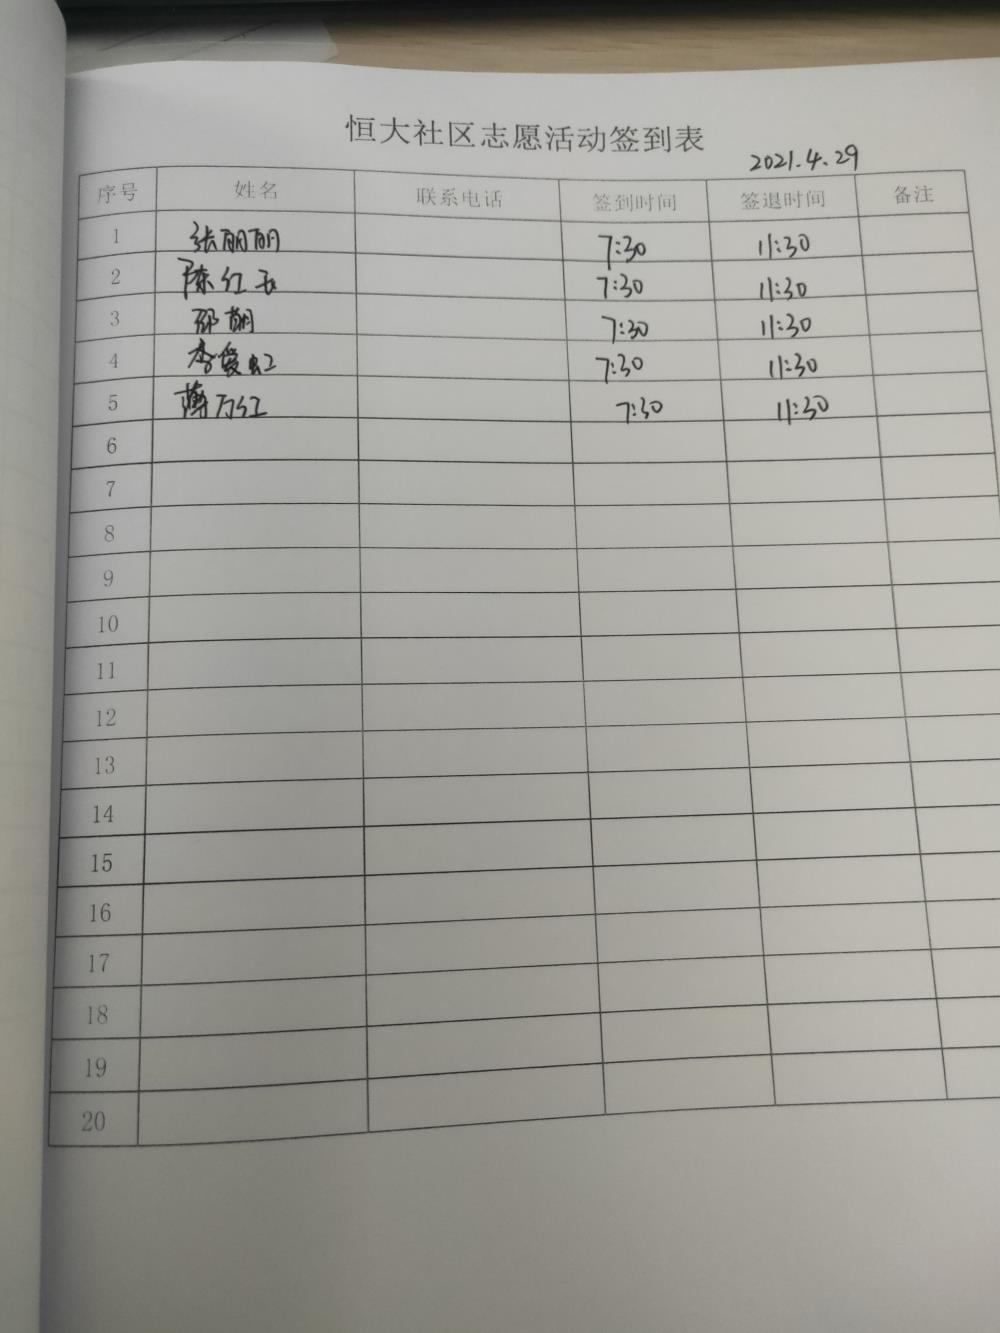 恒大社区志愿活动签到表
2021.4.29
序号 姓名 联系电话 签到时间 签退时间 备注
1 张丽丽 7:30 11:30
2 陈红玉 7:30 11:30
3 邵萌 7:30 11:30
4 李爱虹 7:30 11:30
5 薄万红 7:30 11:30
6
7
8
9
10
11
12
13
14
15
16
17
18
19
20